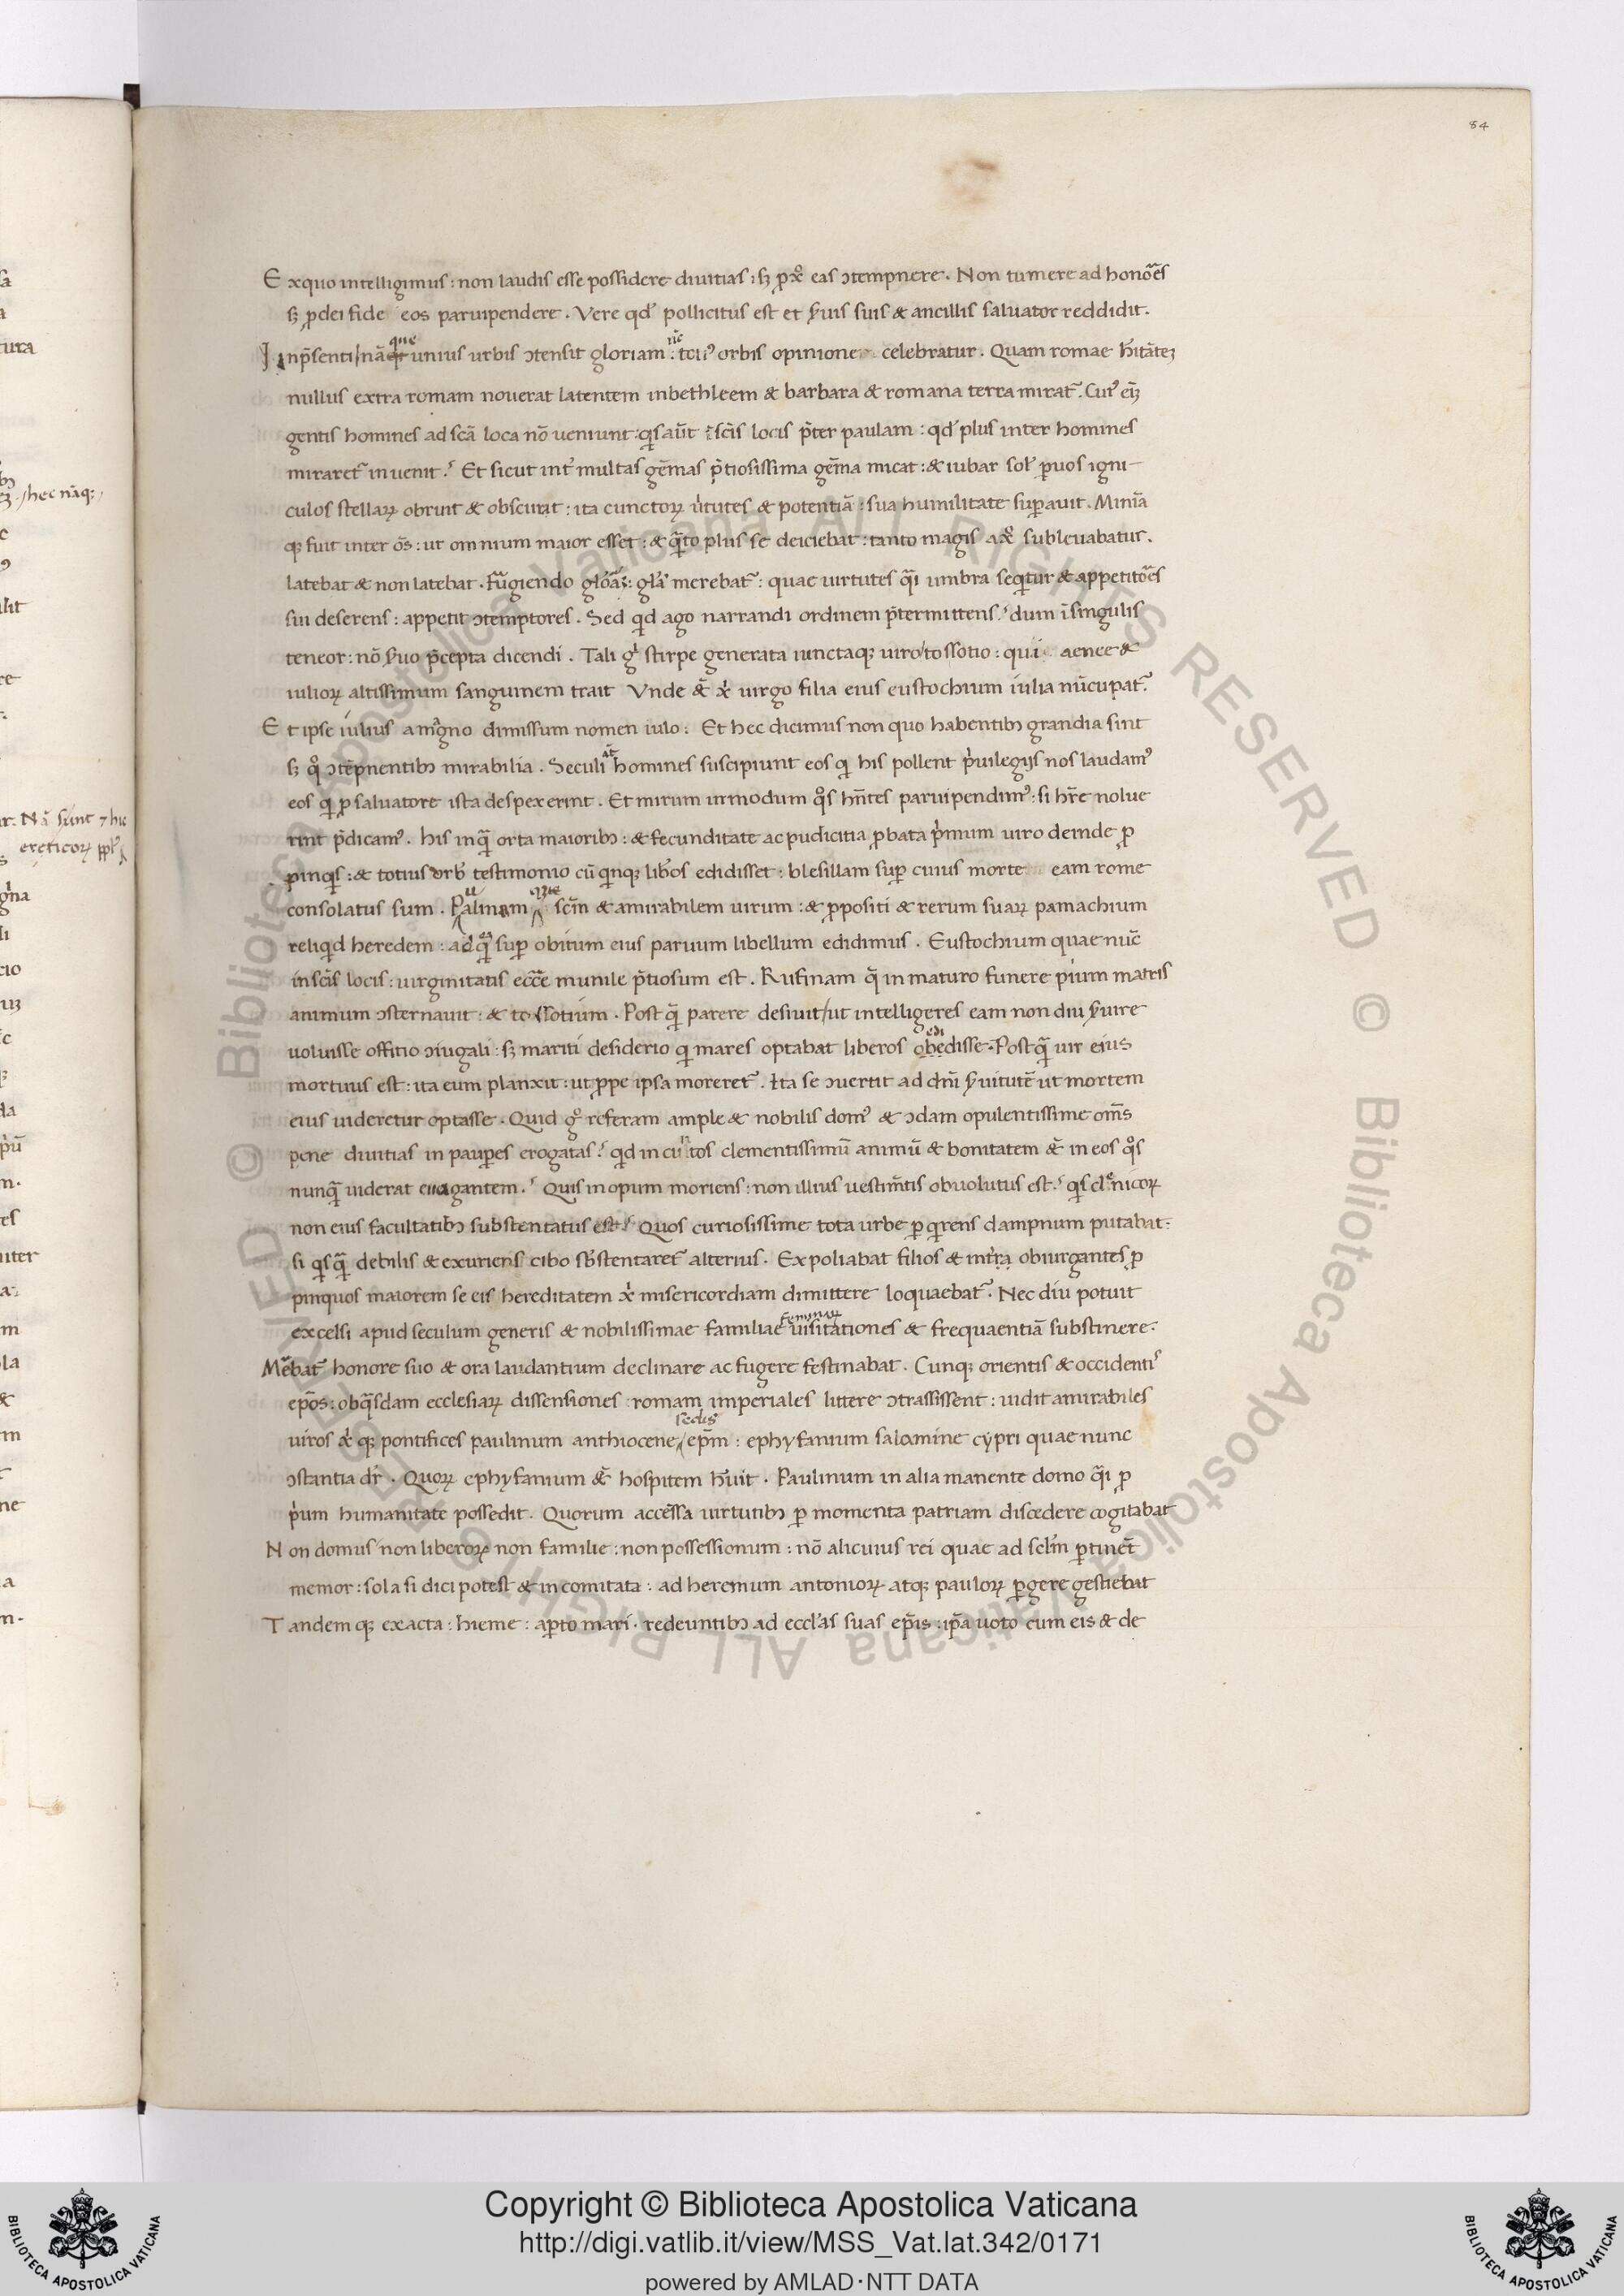 84
E xquo intelligimus : non laudis esse possidere diuitias : sꝫ ꝓ xp̊ eas ↄtempnere . Non tumere ad honoēs
sꝫ ꝓ dei fide eos paruipendere . Vere qd' pollicitus est et s̃uis suis & ancillis saluator reddidit .
I np̃senti / nā que unius urbis ↄtensit gloriam : totiꝰ orbis opinione celebratur . Quam romae h'itātē
nullus extra romam nouerat latentem inbethleem & barbara & romana terra mirat᷑ . Cuiꝰ eī
gentis homines ad scā loca nō ueniunt : qis aūt ī scīs locis p̄ter paulam : qd' plus inter homines
miraret᷑ inuenit . Et sicut int᷑ multas gēmas p̄tiosissima gēma micat : & iubar sol' ꝑuos igni-
culos stellaꝝ obruit & obscurat : ita cunctoꝝ ũtutes & potentiā : sua humilitate suꝑauit . Minīa
qꝫ fuit inter oēs : ut omnium maior esset : & qāto plus se deiciebat : tanto magis a xp̊ subleuabatur .
latebat & non latebat . Fugiendo glōā : glā merebat᷑ : quae uirtutes qāi umbra seqitur & appetitoēs
sui deserens : appetit ↄtemptores . Sed qd ago narrandi ordinem p̄termittens dum ī singulis
teneor : nō s̃uo p̄cepta dicendi . Tali gi stirpe generata iunctaqꝫ uiro / tossotio : qui aenee &
iulioꝝ altissimum sanguinem trait Vnde & xp̄i uirgo filia eius eustochium iulia nūcupat᷑ .
E t ipse iulius a magno dimissum nomen iulo : Et hec dicimus non quo habentibꝫ grandia sint
sꝫ qo ↄtēpnentibꝫ mirabilia . Seculi at homines suscipiunt eos qi his pollent p̄uilegijs nos laudamꝰ
eos qi ꝓ saluatore ista despexerint . Et mirum inmodum qos hn̄tes paruipendimꝰ : si hr̄e nolue
rint p̄dicamꝰ . His inqā orta maioribꝫ : & fecunditate ac pudicitia ꝓbata p̄mum uiro deinde ꝓ
pinqis : & totius urb' testimonio cū qinqꝫ lib'os edidisset : blesillam suꝑ cuius morte eam rome
consolatus sum . Paulinam que scm̄ & amirabilem uirum : & ꝓpositi & rerum suaꝝ pamachium
reliqid heredem : ad qē suꝑ obitum eius paruum libellum edidimus . Eustochium quae nūc
inscīs locis : uirginitatis ecc̄e munile p̄tiosum est . Rufinam q̄ in maturo funere pium matris
animum ↄsternauit : & tossotium . Post qā parere desiuit / ut intelligeres eam non diu s̃uire
uoluisse offitio ↄiugali : sꝫ mariti desiderio qi mares optabat liberos obedisse . Postqā uir eius
mortuus est : ita eum planxit : ut ꝓpe ipsa moreret᷑ . Ita se ↄuertit ad dn̄i s̃uitutē ut mortem
eius uideretur optasse . Quid go referam ample & nobilis domꝰ & ↄdam opulentissime om̄s
pene diuitias in pauꝑes erogatas qd in cūctos clementissimū animū & bonitatem & in eos qos
nunqā uiderat euagantem . Quis inopum moriens : non illius uestim̄tis obuolutus est . qis clenicoꝝ
non eius facultatibꝫ substentatus est Quos curiosissime tota urbe ꝑqirens dampnum putabat :
si qisqā debilis & exuriens cibo sb'stentaret᷑ alterius . Expoliabat filios & int᷑ra obiurgantes ꝓ
pinquos maiorem se eis hereditatem xp̄i misericordiam dimittere loquaebat᷑ . Nec diu potuit
excelsi apud seculum generis & nobilissimae familiae uisitationes & frequaentiā substinere .
Mēbat᷑ honore suo & ora laudantium declinare ac fugere festinabat . Cunqꝫ orientis & occidentis
ep̄os : ob qāsdam ecclesiaꝝ dissensiones romam imperiales littere ↄtraxissent : uidit amirabiles
uiros xp̄i qꝫ pontifices paulinum anthiocene sedis ep̄m : ephyfanium salamine cypri quae nunc
ↄstantia dr̄ . Quoꝝ ephyfanium & hospitem h'uit . Paulinum in alia manente domo qāi ꝓ
p̄um humanitate possedit . Quorum accēssa uirtutibꝫ ꝑ momenta patriam discedere cogitabat
N on domus non liberoꝝ non familie : non possessionum : nō alicuius rei quae ad sclm̄ ꝑtinēt
memor : sola si dici potest & incomitata : ad heremum antonioꝝ atqꝫ pauloꝝ ꝑgere gestiebat
T andem qꝫ exacta : hieme : aꝑto mari . redeuntibꝫ ad eccl'as suas ep̄is : ip̄a uoto cum eis & de
Copyright © Biblioteca Apostolica Vaticana
http://digi.vatlib.it/view/MSS_Vat.lat.342/0171
powered by AMLAD·NTT DATA
BIBLIOTECA APOSTOLICA VATICANA
BIBLIOTECA APOSTOLICA VATICANA
© Biblioteca Apostolica Vaticana ALL RIGHTS RESERVED © Biblioteca Apostolica Vaticana ALL RIGHTS RESERVED